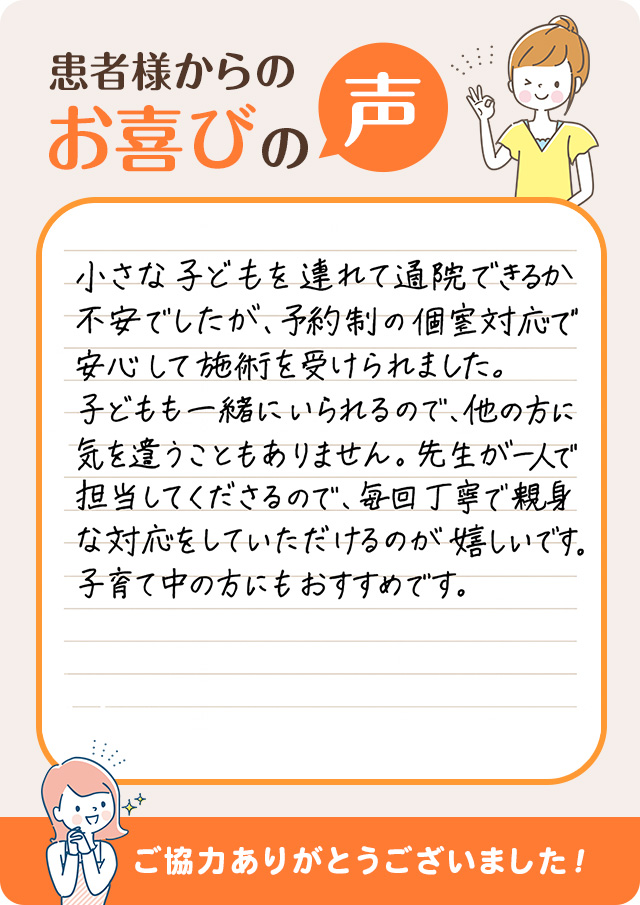 患者様からの
お喜びの声
小さな子どもを連れて通院できるか
不安でしたが、予約制の個室対応で
安心して施術を受けられました。
子どもも一緒にいられるので、他の方に
気を遣うこともありません。先生が一人で
担当してくださるので、毎回丁寧で親身
な対応をしていただけるのが嬉しいです。
子育て中の方にもおすすめです。
ご協力ありがとうございました!